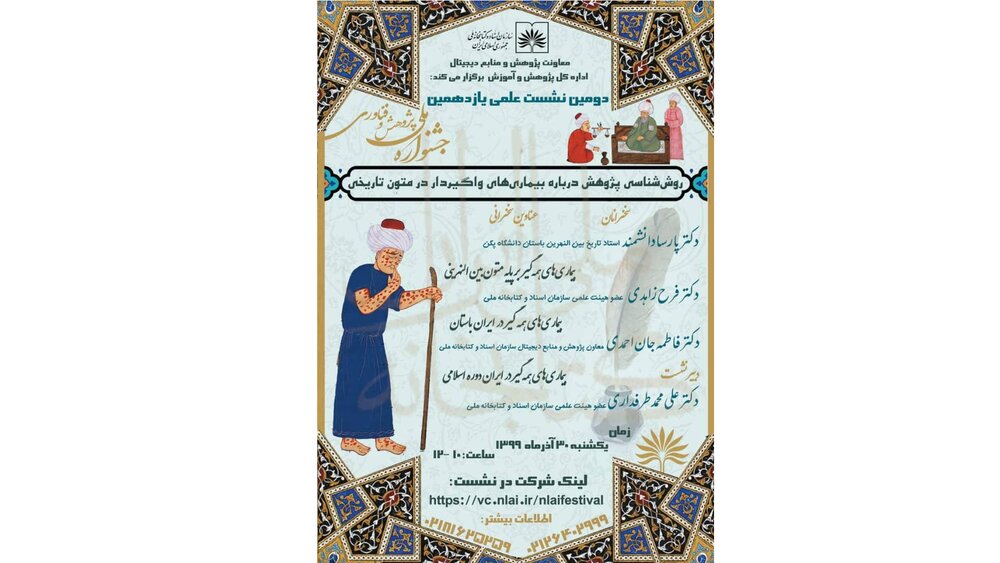 سازمان اسناد و کتابخانه ملی
جمهوری اسلامی ایران
معاونت پژوهش و منابع دیجیتال
اداره کل پژوهش و آموزش برگزار می کند:
دومین نشست علمی یازدهمین
جشنواره ملی پژوهش و فناوری
روش‌شناسی پژوهش درباره بیماری‌های واگیردار در متون تاریخی
سخنرانان عناوین سخنرانی
دکتر پارسا دانشمند استاد تاریخ بین النهرین باستان دانشگاه پکن
بیماری‌های همه گیر بر پایه متون بین النهرینی
دکتر فرح زاهدی عضو هیئت علمی سازمان اسناد و کتابخانه ملی
بیماری‌های همه گیر در ایران باستان
دکتر فاطمه جان احمدی معاون پژوهش و منابع دیجیتال سازمان اسناد و کتابخانه ملی
بیماری‌های همه گیر در ایران دوره اسلامی
دبیر نشست
دکتر علی محمد طرفداری عضو هیئت علمی سازمان اسناد و کتابخانه ملی
زمان
یکشنبه ۳۰ آذرماه ۱۳۹۹
ساعت: ۱۰-۱۲
لینک شرکت در نشست:
https://vc.nlai.ir/nlaifestival
اطلاعات بیشتر:
۰۲۱۸۱۶۲۵۲۵۹ ۰۲۱۲۶۴۰۲۹۹۹